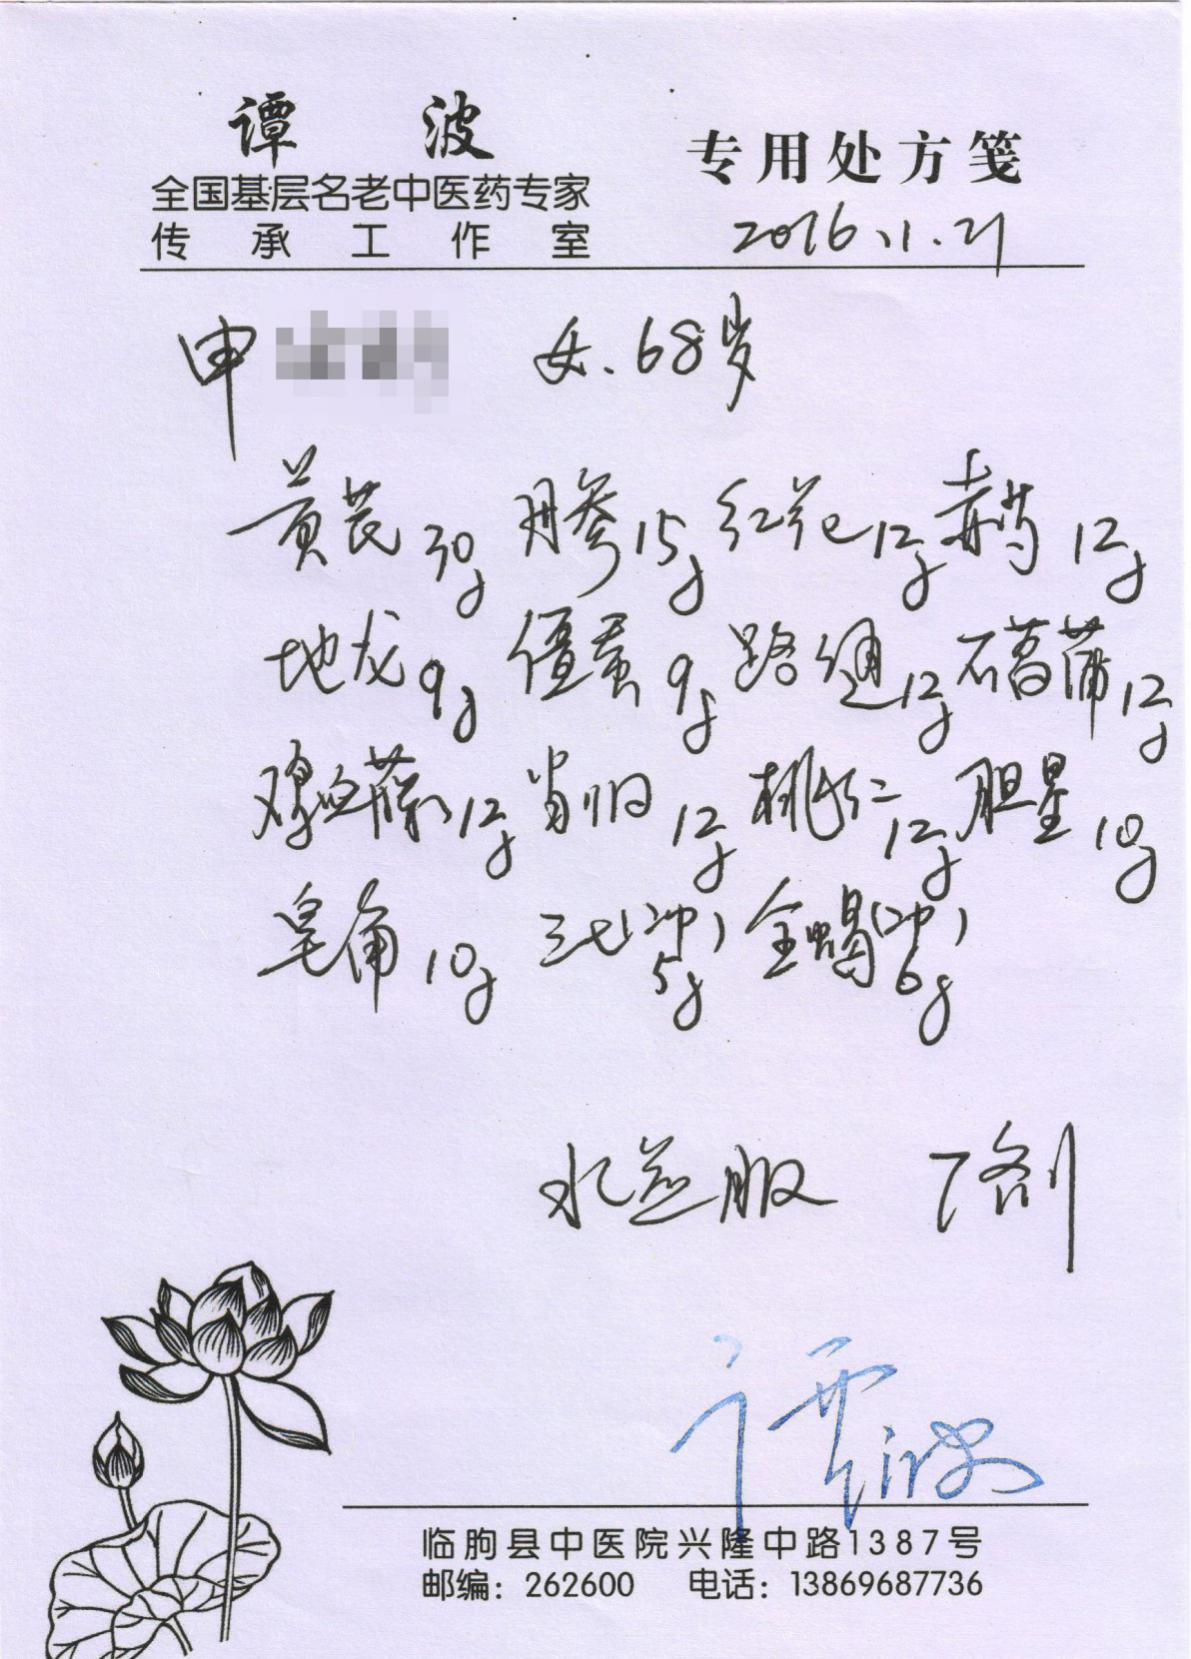 谭 波
全国基层名老中医药专家
传承工作室
专用处方笺
2016.11.21
申 女.68岁
黄芪30g 丹参15g 红花12g 赤芍12g
地龙9g 僵蚕9g 路 12g 石菖蒲12g
鸡血藤12g 当归12g 桃仁12g 胆星10g
皂角10g 三七(冲)5g 全蝎(冲)6g
水煎服 剂
谭波
临朐县中医院兴隆中路1387号
邮编：262600 电话：13869687736